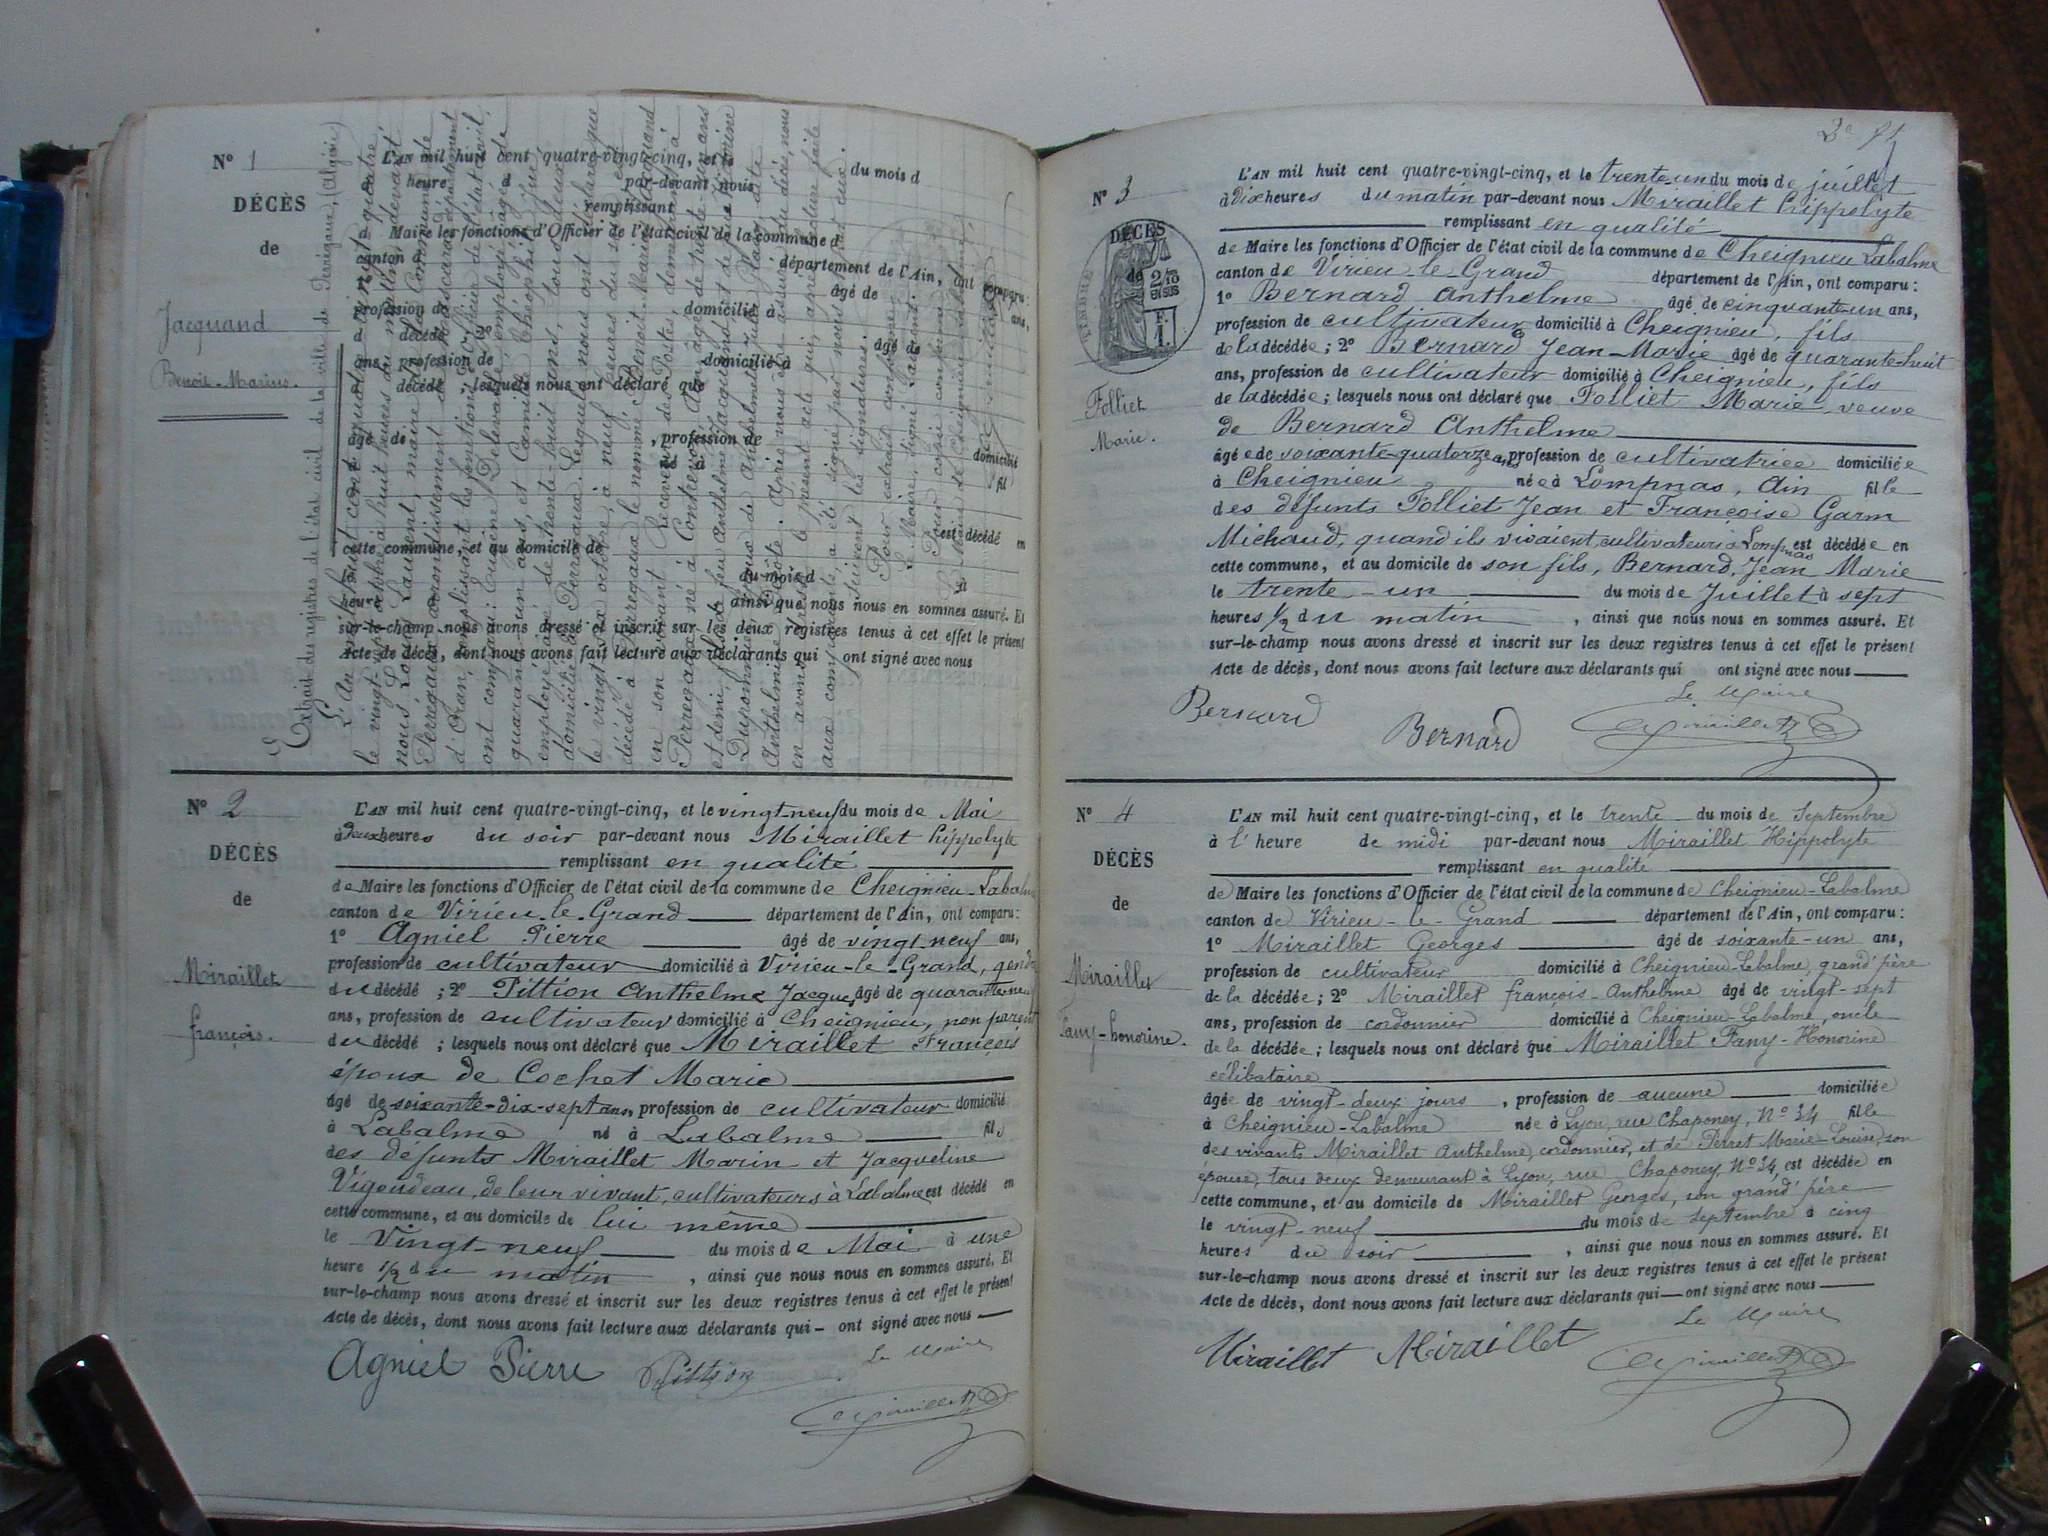 N° 1
DÉCÈS
de
Jacquand
Benoit-Marius.
L'AN mil huit cent quatre-vingt-cinq, et le du mois d
heure d par-devant nous
remplissant
d Maire les fonctions d'Officier de l'état civil de la commune d
canton d département de l'Ain, ont comparu :
1° âgé de ans,
profession de domicilié à
d décédé 2° âgé de
ans, profession de domicilié à
d décédé ; lesquels nous ont déclaré que
âgé de , profession de domicilié
à né à fil
est décédé en
cette commune, et au domicile de
du mois d à
heure ainsi que nous nous en sommes assuré. Et
sur-le-champ nous avons dressé et inscrit sur les deux registres tenus à cet effet le présent
Acte de décès, dont nous avons fait lecture aux déclarants qui ont signé avec nous
Extrait des registres de l'état civil de la ville de Perrégaux, (Algérie)
L'An mil huit cent quatre-vingt-quatre
le vingt-sept octobre à huit heures du matin, devant
nous, Laurent, maire de la Commune de
Perrégaux, arrondissement de Mascara, département
d'Oran, remplissant les fonctions d'officier de l'état civil,
ont comparu: Eugène Delervale, employé, âgé de
quarante un ans, et Camille Théophile
employé, âgé de trente-huit ans, tous deux
domiciliés à Perregaux. Lesquels nous ont déclaré que
le vingt-six octobre, à neuf heures du soir, est
décédé à Perregaux le nommé Benoit-Marius Jacquand
en son vivant Receveur des Postes, demeurant à
Perregaux, né à Contrevoz (Ain), âgé de trente-un ans
et demi, fils de feu Anthelme Jacquand, et de
époux de Anthelmette
Anthelme Après nous être assuré du décès, nous
en avons dressé le présent acte qui, après lecture faite
aux comparants, a été signé par nous et par eux.
Suivent les signatures.
Pour extrait conforme
Le Maire, signé Laurent.
Pour copie conforme
Le Maire de Cheignieu-Labalme,
N° 2
DÉCÈS
de
Miraillet
françois.
L'AN mil huit cent quatre-vingt-cinq, et le vingt neuf du mois de Mai
à Deux heures du soir par-devant nous Miraillet hippolyte
remplissant en qualité
de Maire les fonctions d'Officier de l'état civil de la commune de Cheignieu-Labalme
canton de Virieu-le-Grand département de l'Ain, ont comparu :
1° Agniel Pierre âgé de vingt-neuf ans,
profession de cultivateur domicilié à Virieu-le-Grand, gendre
du décédé ; 2° Pittion Anthelme Jacques, âgé de quarante-neuf
ans, profession de cultivateur domicilié à Cheignieu, non parent
du décédé ; lesquels nous ont déclaré que Miraillet François
époux de Cochet Marie
âgé de soixante-dix-sept ans, profession de cultivateur domicilié
à Labalme né à Labalme fils
des défunts Miraillet Marin et Jacqueline
Vigoudeau, de leur vivant, cultivateurs à Labalme est décédé en
cette commune, et au domicile de lui même
le Vingt-neuf du mois de Mai à une
heure 1/2 du matin , ainsi que nous nous en sommes assuré. Et
sur-le-champ nous avons dressé et inscrit sur les deux registres tenus à cet effet le présent
Acte de décès, dont nous avons fait lecture aux déclarants qui ont signé avec nous
Agniel Pierre Pittion Le Maire
Miraillet
N° 3
DÉCÈS
de
TIMBRE
2/10
EN SUS
F
1.
Folliet
Marie.
L'AN mil huit cent quatre-vingt-cinq, et le trente-un du mois de juillet
à Dix heures du matin par-devant nous Miraillet hippolyte
remplissant en qualité
de Maire les fonctions d'Officier de l'état civil de la commune de Cheignieu Labalme
canton de Virieu-le-Grand département de l'Ain, ont comparu :
1° Bernard Anthelme âgé de cinquante-un ans,
profession de cultivateur domicilié à Cheignieu, fils
de la décédée ; 2° Bernard Jean-Marie âgé de quarante-huit
ans, profession de cultivateur domicilié à Cheignieu, fils
de la décédée ; lesquels nous ont déclaré que Folliet Marie, veuve
de Bernard Anthelme
âgée de soixante-quatorze ans, profession de cultivatrice domiciliée
à Cheignieu née à Lompnas, Ain fille
des défunts Folliet Jean et Françoise Garin
Michaud, quand ils vivaient, cultivateurs à Lompnas est décédée en
cette commune, et au domicile de son fils, Bernard, Jean Marie
le trente-un du mois de Juillet à sept
heures 1/2 du matin , ainsi que nous nous en sommes assuré. Et
sur-le-champ nous avons dressé et inscrit sur les deux registres tenus à cet effet le présent
Acte de décès, dont nous avons fait lecture aux déclarants qui ont signé avec nous
Le Maire
Bernard Bernard Miraillet
N° 4
DÉCÈS
de
Miraillet
Fany-honorine.
L'AN mil huit cent quatre-vingt-cinq, et le trente du mois de Septembre
à l'heure de midi par-devant nous Miraillet Hippolyte
remplissant en qualité
de Maire les fonctions d'Officier de l'état civil de la commune de Cheignieu-Labalme
canton de Virieu-le-Grand département de l'Ain, ont comparu :
1° Miraillet Georges âgé de soixante-un ans,
profession de cultivateur domicilié à Cheignieu-Labalme, grand'père
de la décédée ; 2° Miraillet françois-Anthelme âgé de vingt-sept
ans, profession de cordonnier domicilié à Cheignieu-Labalme, oncle
de la décédée ; lesquels nous ont déclaré que Miraillet Fany-Honorine
célibataire
âgée de vingt-deux jours , profession de aucune domiciliée
à Cheignieu-Labalme née à Lyon, rue Chaponey, N° 34 fille
des vivants Miraillet Anthelme, cordonnier, et de Perret Marie-Louise, son
épouse, tous deux demeurant à Lyon, rue Chaponey, N° 34, est décédée en
cette commune, et au domicile de Miraillet Georges, son grand'père
le vingt-neuf du mois de Septembre à cinq
heures du soir , ainsi que nous nous en sommes assuré. Et
sur-le-champ nous avons dressé et inscrit sur les deux registres tenus à cet effet le présent
Acte de décès, dont nous avons fait lecture aux déclarants qui ont signé avec nous
Le Maire
Miraillet Miraillet Miraillet